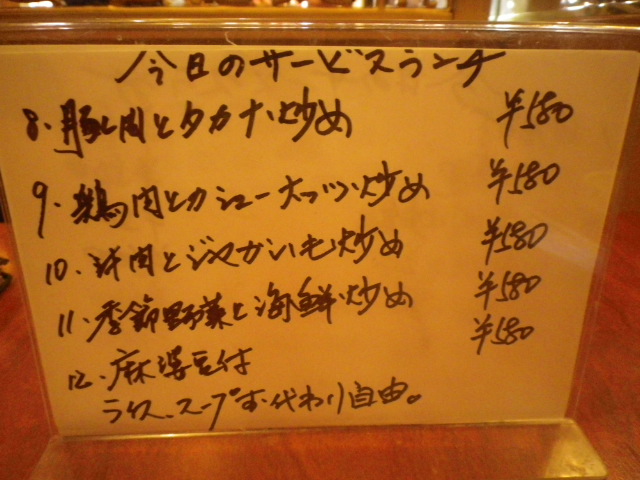 今日のサービスランチ
8. 豚肉とタカナ炒め ¥580
9. 鶏肉とカシューナッツ炒め ¥580
10. 肉とジャガいも炒め ¥580
11. 季節野菜と海鮮炒め ¥580
12. 麻婆豆付 ¥580
ライス、スープお代わり自由。